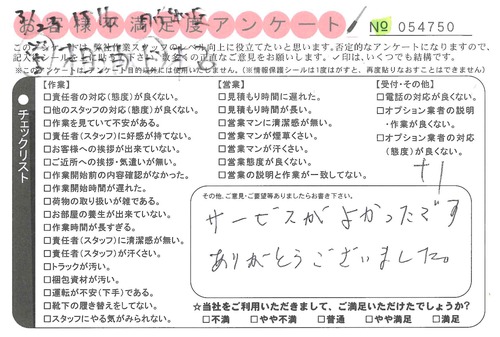 お客様不満足度アンケート
№ 054750
このアンケートは、弊社作業スタッフのレベル向上に役立てたいと思います。否定的なアンケートになりますので、
記入シールをお貼りください。お客様の正直なご意見をお願いします。✓印は、いくつでも結構です。
※このアンケートはアンケート目的以外には使用いたしません。(※情報保護シールは1度はがすと、再度貼りなおすことはできません)
チェックリスト
【作業】
□責任者の対応(態度)が良くない。
□他のスタッフの対応(態度)が良くない。
□作業を見ていて不安がある。
□責任者(スタッフ)に好感が持てない。
□お客様への挨拶が出来ていない。
□ご近所への挨拶・気遣いが無い。
□作業開始前の内容確認がなかった。
□作業開始時間が遅れた。
□荷物の取り扱いが雑である。
□お部屋の養生が出来ていない。
□作業時間が長すぎる。
□責任者(スタッフ)に清潔感が無い。
□責任者(スタッフ)が汗くさい。
□トラックが汚い。
□梱包資材が汚い。
□運転が不安(下手)である。
□靴下の履き替えをしてない。
□スタッフにやる気がみられない。
【営業】
□見積もり時間に遅れた。
□見積もり時間が長い。
□営業マンに清潔感が無い。
□営業マンが煙草くさい。
□営業マンが汗くさい。
□営業態度が良くない。
□営業の説明と作業が一致してない。
【受付・その他】
□電話の対応が良くない。
□オプション業者の説明
・作業が良くない。
□オプション業者の対応
(態度)が良くない。
その他、ご意見・ご要望等ありましたらお書き下さい。
サービスがよかったです
ありがとうございました。
☆当社をご利用いただきまして、ご満足いただけたでしょうか?
□不満 □やや不満 □普通 □やや満足 □満足